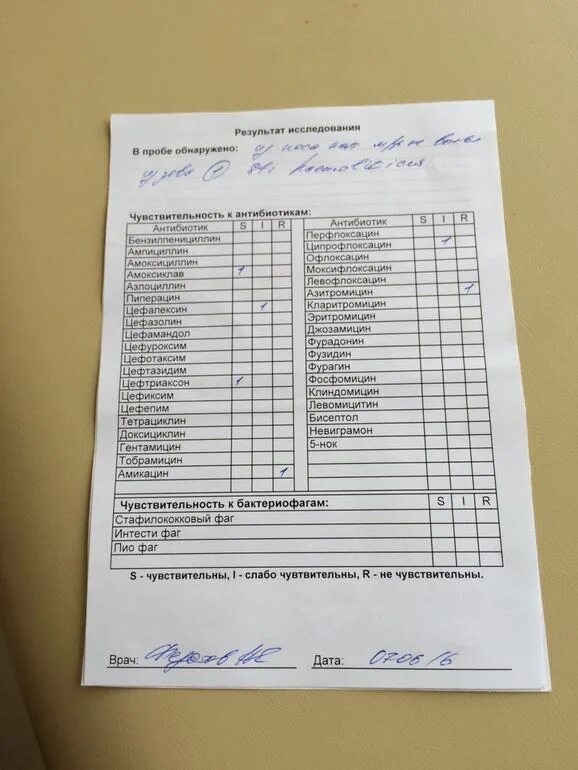 Результат исследования
В пробе обнаружено: из носа
из зева
Чувствительность к антибиотикам:
Антибиотик S I R
Бензилпенициллин
Ампициллин
Амоксициллин
Амоксиклав 1
Азлоциллин
Пиперацин
Цефалексин 1
Цефазолин
Цефамандол
Цефуроксим
Цефотаксим
Цефтазидим
Цефтриаксон 1
Цефиксим
Цефепим
Тетрациклин
Доксициклин
Гентамицин
Тобрамицин
Амикацин 1
Антибиотик S I R
Перфлоксацин
Ципрофлоксацин 1
Офлоксацин
Моксифлоксацин
Левофлоксацин
Азитромицин 1
Кларитромицин
Эритромицин
Джозамицин
Фурадонин
Фузидин
Фурагин
Фосфомицин
Клиндомицин
Левомицитин
Бисептол
Невиграмон
5-нок
Чувствительность к бактериофагам: S I R
Стафилококковый фаг
Интести фаг
Пио фаг
S - чувствительны, I - слабо чувтвительны, R - не чувствительны.
Врач: Дата: 070616